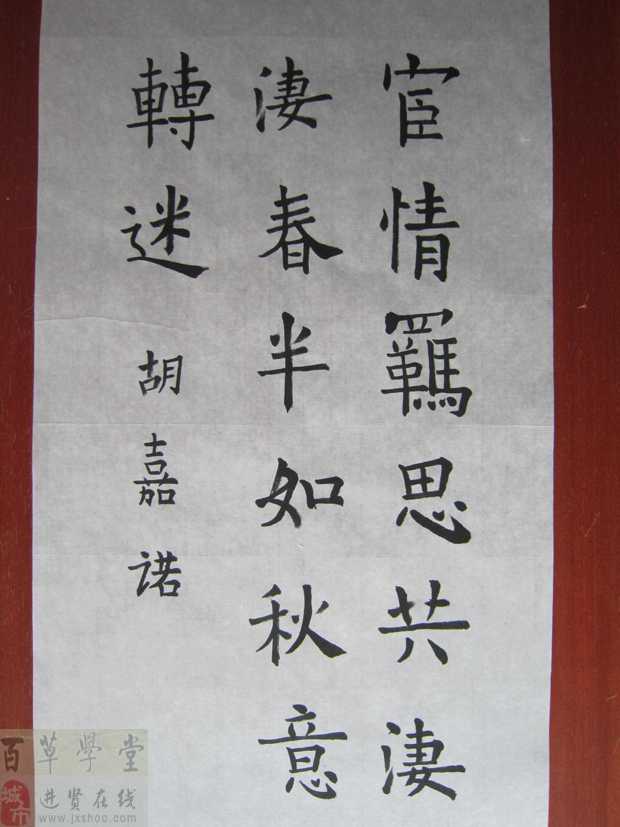 宦情羈思共淒
淒春半如秋意
轉迷 胡嘉诺
百草學堂
城市
进贤在线
www.jxshoo.com